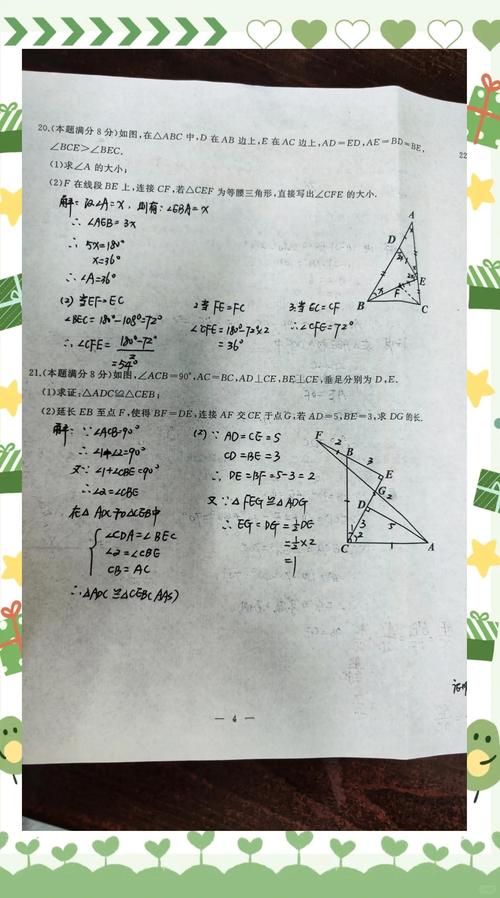 20.(本题满分8分)如图,在△ABC中,D在AB边上,E在AC边上,AD=ED,AE=BD=BE,
∠BCE>∠BEC.
(1)求∠A的大小;
(2)F在线段BE上,连接CF,若△CEF为等腰三角形,直接写出∠CFE的大小.
解:设∠A=x,则有:∠EBA=x
∴∠AEB=3x
∴5x=180°
x=36°
∴∠A=36°
(2)当EF=EC
∠BEC=180°-108°=72°
∴∠CFE=(180°-72°)/2
=54°
2.当FE=FC
∠CFE=180°-72°×2
=36°
3.当EC=CF
∴∠CFE=72°
A
D
E
B
x
F
C
21.(本题满分8分)如图,∠ACB=90°,AC=BC,AD⊥CE,BE⊥CE,垂足分别为D,E.
(1)求证:△ADC≌△CEB;
(2)延长EB至点F,使得BF=DE,连接AF交CE于点G,若AD=5,BE=3,求DG的长.
解:∵∠ACB=90°
∴∠1+∠2=90°
又∵∠1+∠CBE=90°
∴∠2=∠CBE
在△ADC和△CEB中
∠CDA=∠BEC
∠2=∠CBE
CB=AC
∴△ADC≌△CEB(AAS)
(2)∵AD=CE=5
CD=BE=3
∴DE=BF=5-3=2
又∵△FEG≌△ADG
∴EG=DG=1/2DE
=1/2×2
=1
F
2
B
3
E
G
2
D
1
3
5
C
2
A
— 4 —
22